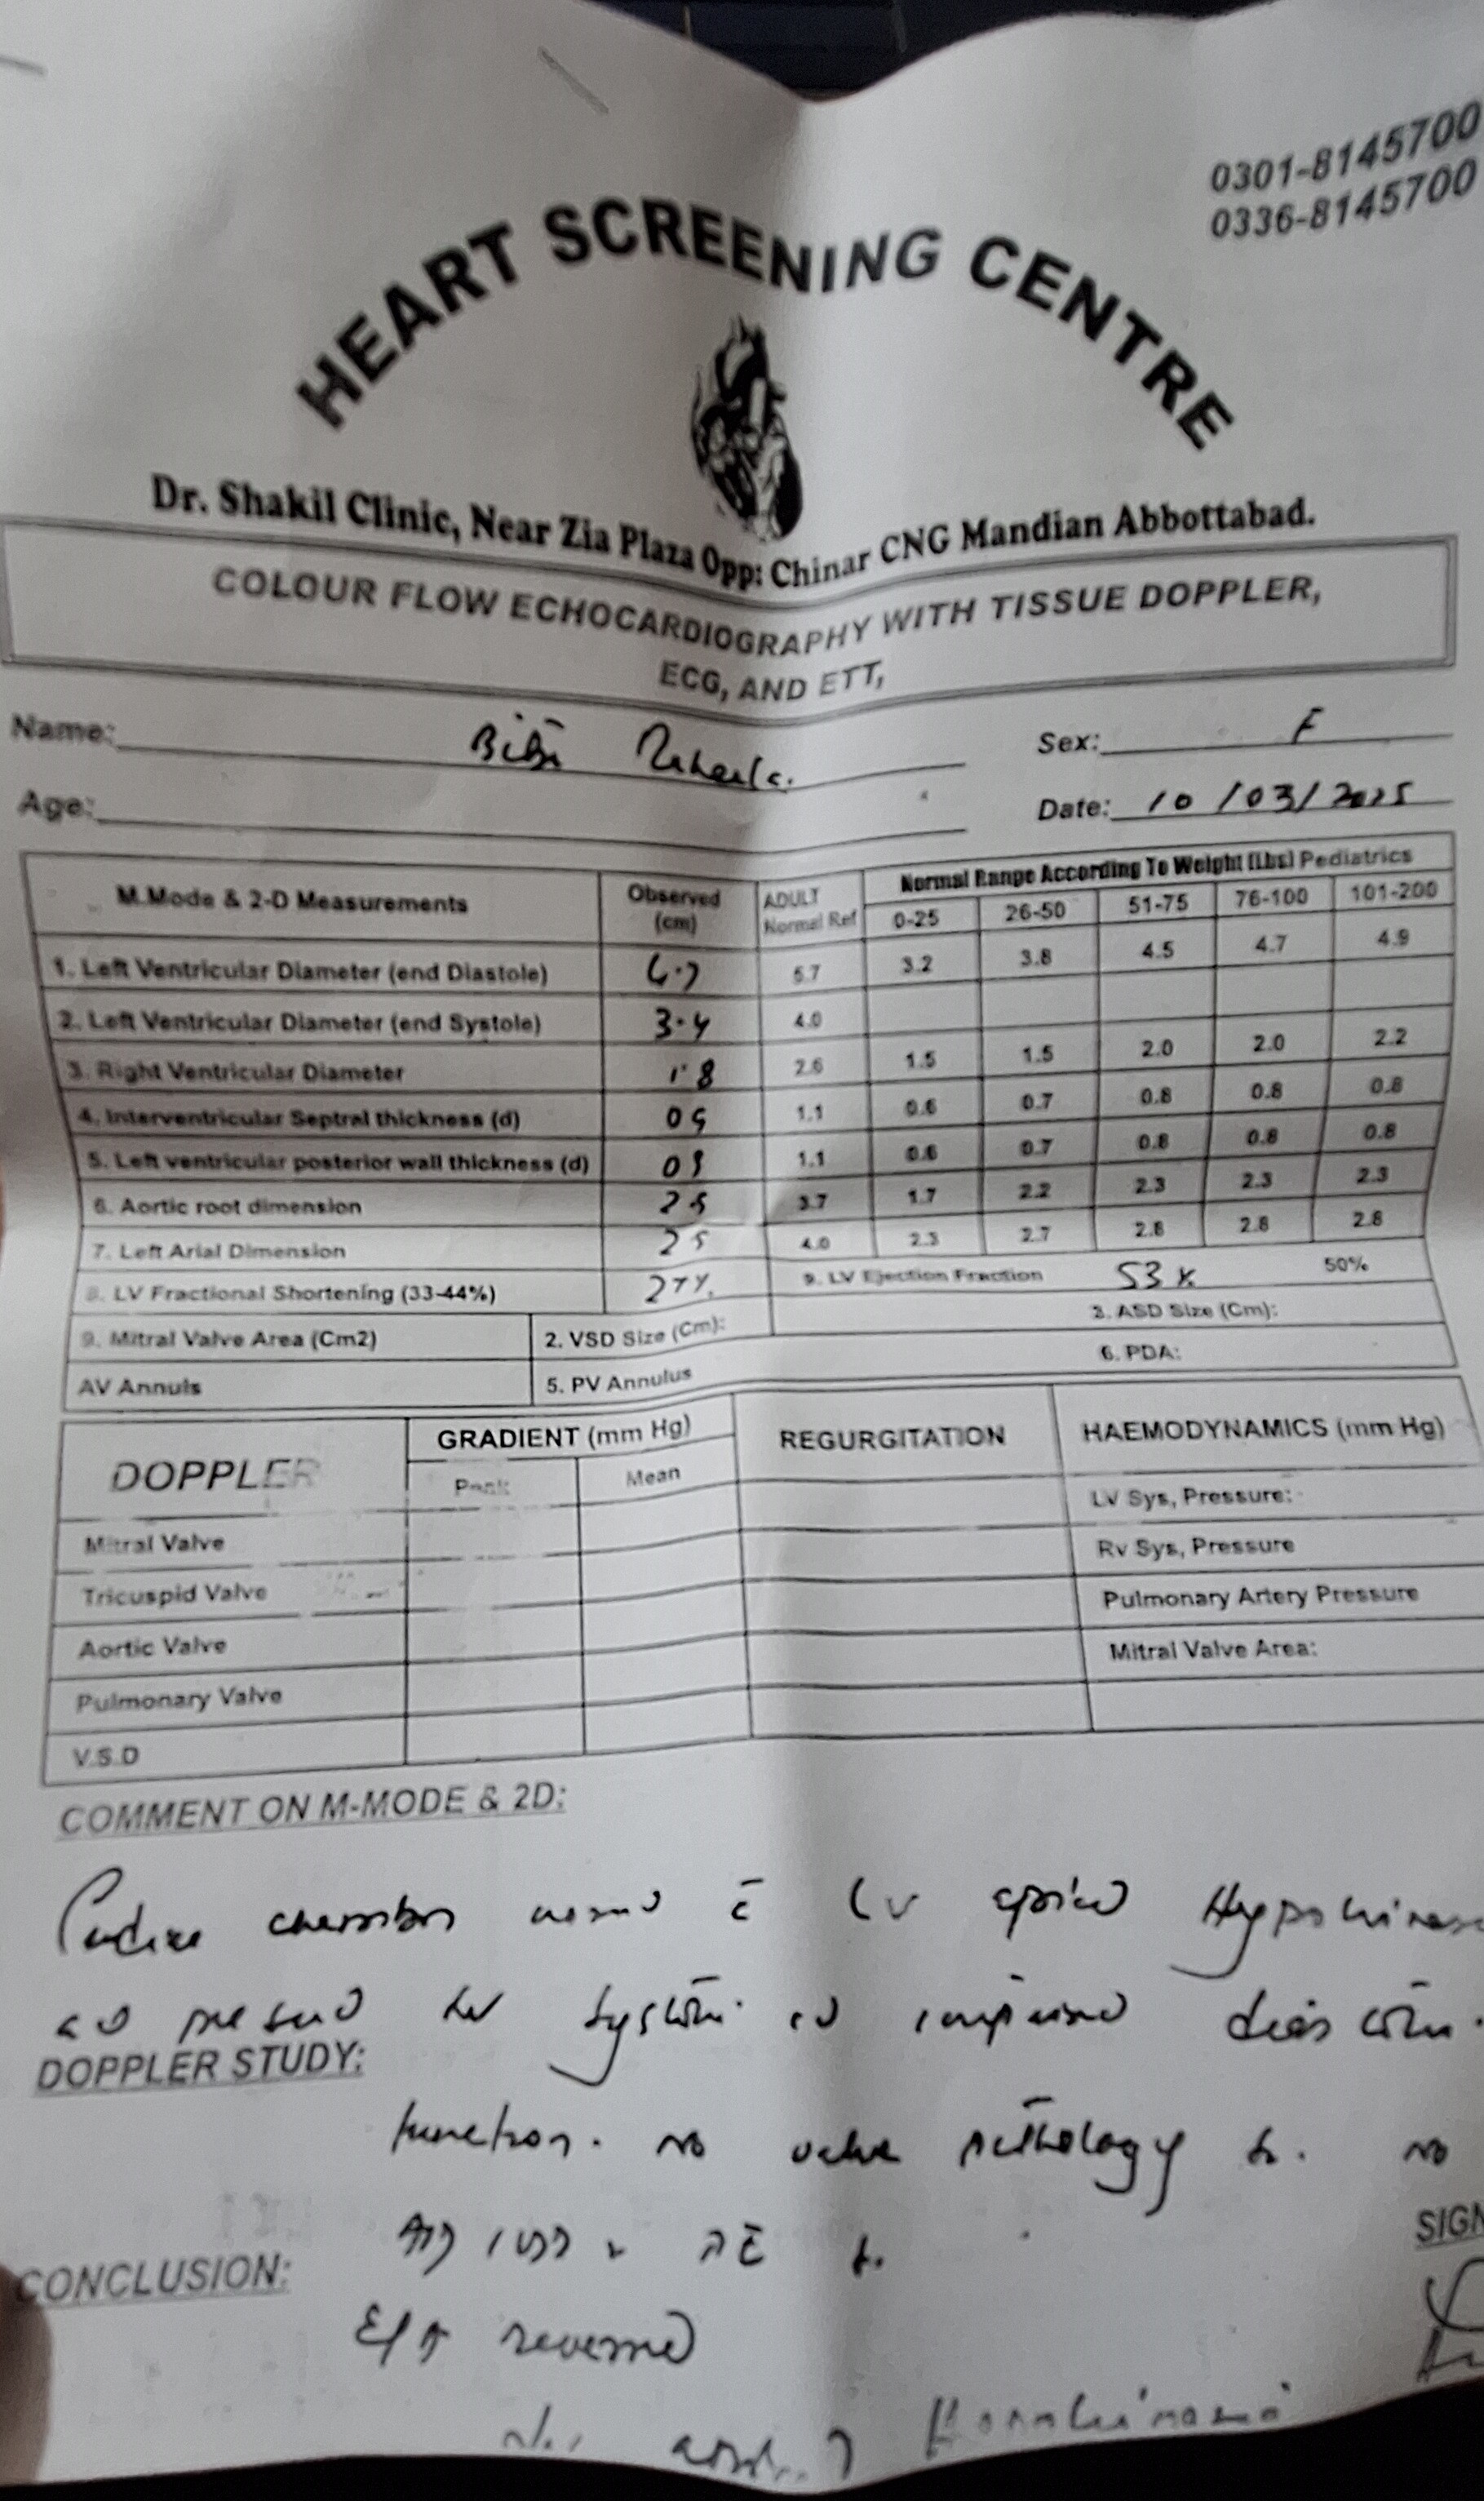 0301-8145700
0336-8145700
HEART SCREENING CENTRE
Dr. Shakil Clinic, Near Zia Plaza Opp: Chinar CNG Mandian Abbottabad.
COLOUR FLOW ECHOCARDIOGRAPHY WITH TISSUE DOPPLER,
ECG, AND ETT,
Name: Bibi Sex: F
Age: Date: 10/03/2025
M.Mode & 2-D Measurements Observed (cm) ADULT Normal Ref Normal Range According To Weight (Lbs) Pediatrics
0-25 26-50 51-75 76-100 101-200
1. Left Ventricular Diameter (end Diastole) 4.7 5.7 3.2 3.8 4.5 4.7 4.9
2. Left Ventricular Diameter (end Systole) 3.4 4.0
3. Right Ventricular Diameter 1.8 2.6 1.5 1.5 2.0 2.0 2.2
4. Interventricular Septral thickness (d) 1.1 0.6 0.7 0.8 0.8 0.8
5. Left ventricular posterior wall thickness (d) 1.1 0.6 0.7 0.8 0.8 0.8
6. Aortic root dimension 3.7 1.7 2.2 2.3 2.3 2.3
7. Left Arial Dimension 25 4.0 2.3 2.7 2.8 2.8 2.8
8. LV Fractional Shortening (33-44%) 27% 9. LV Ejection Fraction 53% 50%
9. Mitral Valve Area (Cm2) 2. VSD Size (Cm): 3. ASD Size (Cm):
AV Annuls 5. PV Annulus 6. PDA:
DOPPLER GRADIENT (mm Hg) REGURGITATION HAEMODYNAMICS (mm Hg)
Peak Mean LV Sys, Pressure:
Mitral Valve Rv Sys, Pressure
Tricuspid Valve Pulmonary Artery Pressure
Aortic Valve Mitral Valve Area:
Pulmonary Valve
V.S.D
COMMENT ON M-MODE & 2D:
chambers LV apical
DOPPLER STUDY:
function. no valve pathology no
CONCLUSION: SIGN
E/A reversed